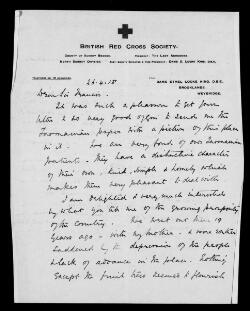 BRITISH RED CROSS SOCIETY.
COUNTY OF SURREY BRANCH. PRESIDENT: THE LADY
NORTH SURREY DIVISION.
DAME ETHEL LOCKE KING, D.B.E.
BROOKLANDS,
WEYBRIDGE.
23.4.18
Dear Sir Francis.
It was such a pleasure to get your
letter & so very good of you to send me the
Tasmanian paper with a picture of this place
in it. We are very fond of our Tasmanian
patients. They have a distinctive character
of their own. kind, simple & homely which
makes them very pleasant to deal with
I am delighted & very much interested
by what you tell me of the growing prosperity
of the Country. We went out there 19
years ago - with my mother. & were rather
saddened by the depression of the people
& lack of advance in the place. Nothing
except the fruit trees seemed to flourish